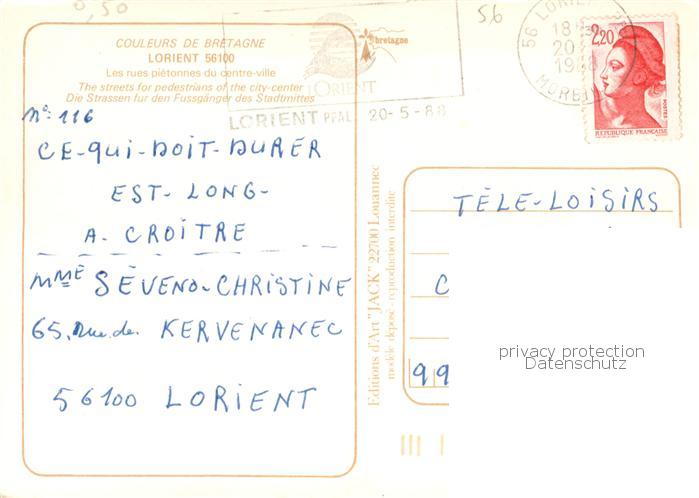 0,50
56
COULEURS DE BRETAGNE
LORIENT 56100
Les rues piétonnes du centre-ville
The streets for pedestrians of the city-center
Die Strassen fur den Fussgänger des Stadtmittes
bretagne
LORIENT
LORIENT PPAL 20-5-88
56 LORIENT
18 H
20
1988
MORBIHAN
2,20
POSTES
REPUBLIQUE FRANÇAISE
N°: 116
CE-QUI-DOIT-DURER
EST-LONG-
A-CROITRE
MME SÉVENO-CHRISTINE
65, Rue de KERVENANEC
56100 LORIENT
Editions d'Art "JACK" 22700 Louannec
modèle déposé - reproduction interdite
TÉLÉ-LOISIRS
C
99
privacy protection
Datenschutz